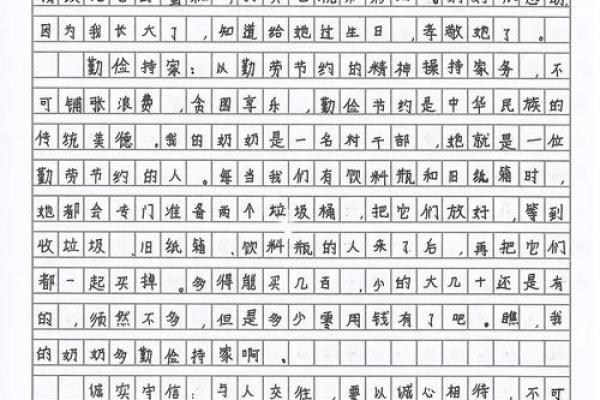 因为我长大了,知道给她过生日,孝敬她了。
勤俭持家:以勤劳节约的精神操持家务,不
可铺张浪费,贪图享乐,勤俭节约是中华民族的
传统美德。我的奶奶是一名村干部,她就是一位
勤劳节约的人。每当我们有饮料瓶和旧纸箱时,
她都会专门准备两个垃圾桶,把它们放好,等到
收垃圾、旧纸箱、饮料瓶的人来了后,再把它们
都一起买掉。多得能买几百,少的大几十还是有
的,须然不多,但是多少零用钱有了吧。瞧,我
的奶奶多勤俭持家啊。
诚实守信:与人交往,要以诚心相待,不可